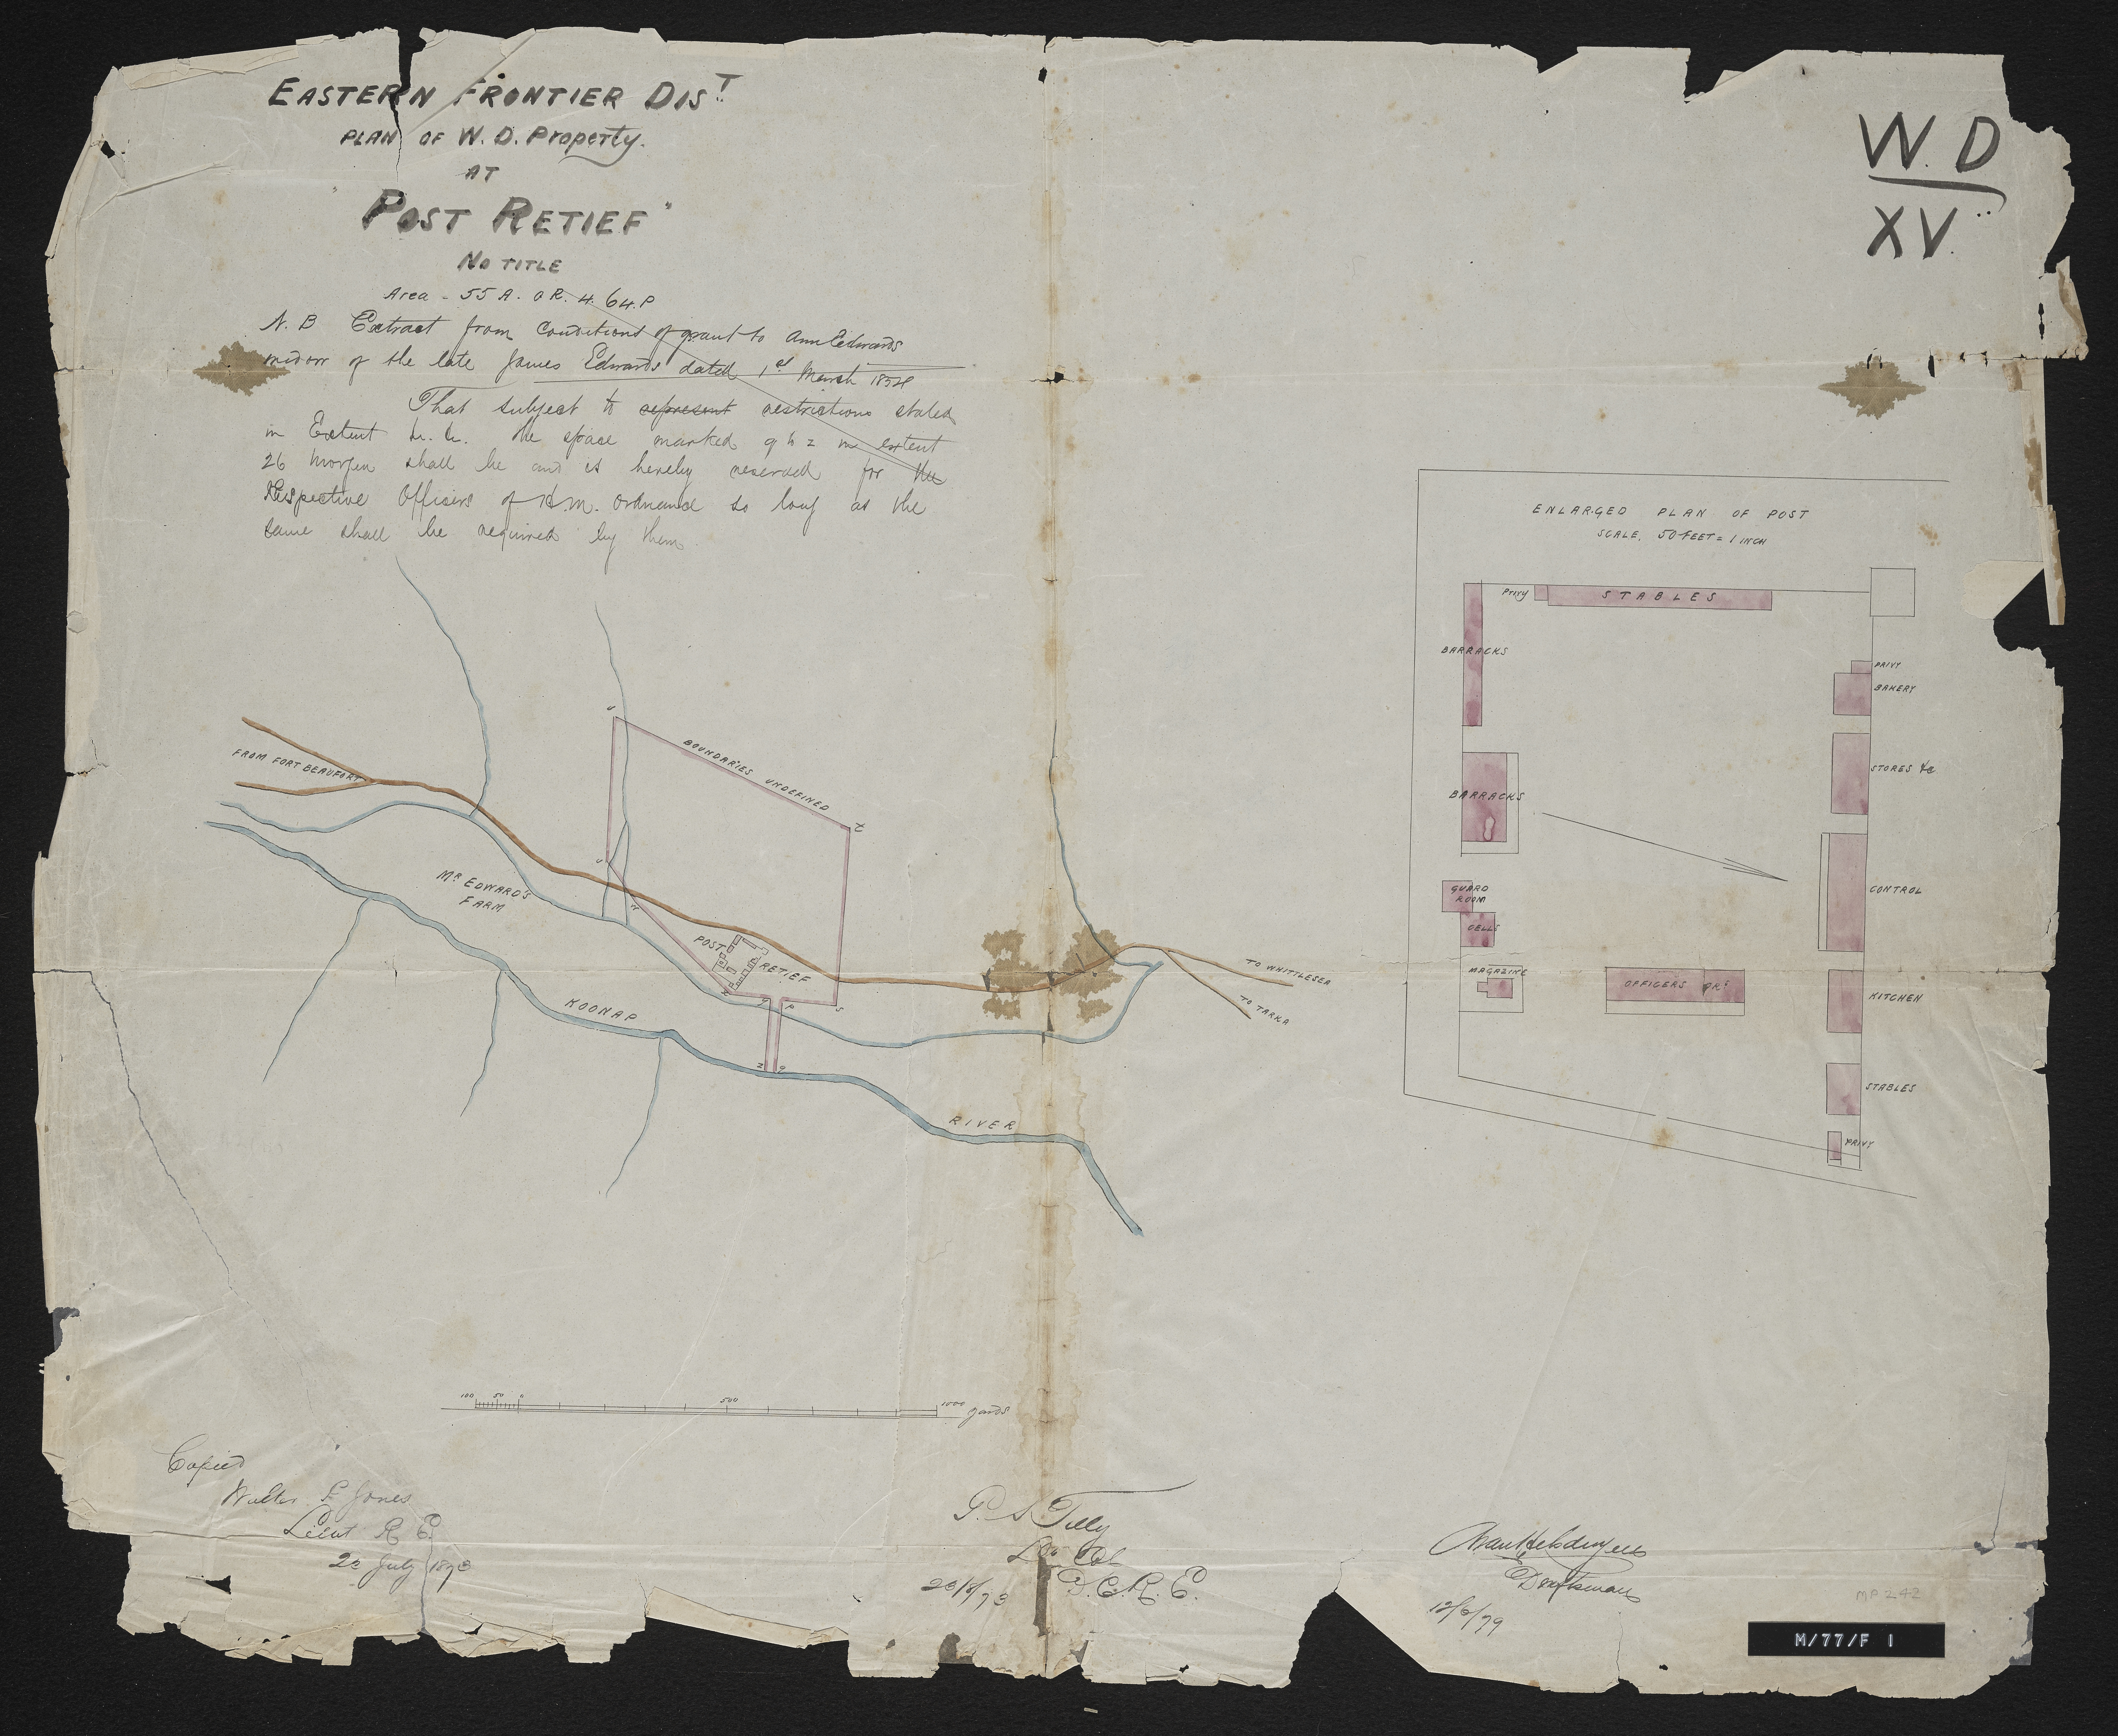 EASTERN FRONTIER DIST
PLAN OF W. D. Property.
AT
"POST RETIEF"
NO TITLE
Area - 55 A. 0 R. 4.64 P
N. B Extract from Conditions of grant to Ann Edwards
widow of the late James Edwards dated 1st March
That subject to represent restrictions stated
in Extent the space marked g h z in extent
26 Morgen shall be and is hereby reserved for the
Respective Officers of H.M. Ordnance so long as the
same shall be required by them.
W. D
XV.
ENLARGED PLAN OF POST
SCALE, 50 FEET = 1 INCH
Privy
STABLES
BARRACKS
PRIVY
BAKERY
STORES &c
BARRACKS
CONTROL
GUARD
ROOM
CELLS
MAGAZINE
OFFICERS QRS
KITCHEN
STABLES
PRIVY
BOUNDARIES UNDEFINED
FROM FORT BEAUFORT
MR EDWARD'S
FARM
POST
RETIEF
TO WHITTLESEA
TO TARKA
KOONAP
RIVER
100 50 0 500 1000 yards
Copied
Walter F Jones
Lieut R E.
July
P. S Tilly
Lt Col
D. C. R. E.
Draftsman
12/6/79
MP 242
M/77/F 1